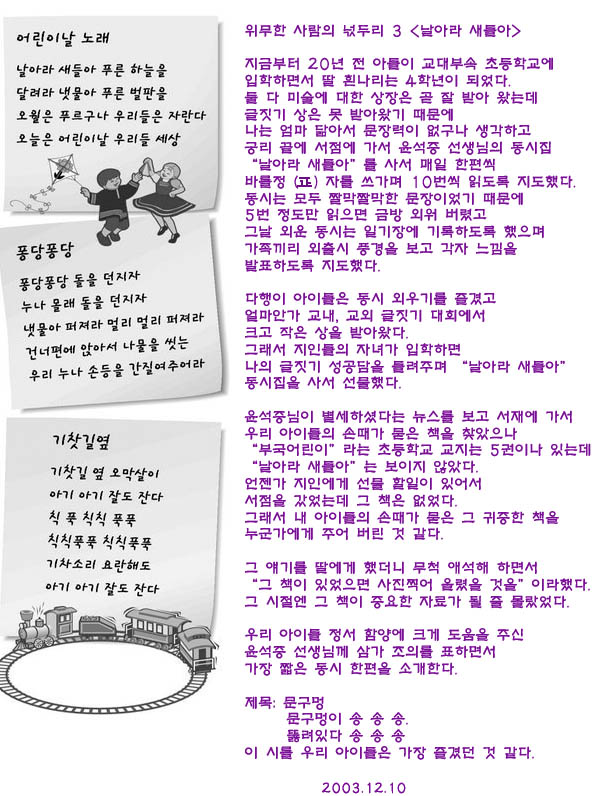 어린이날 노래
날아라 새들아 푸른 하늘을
달려라 냇물아 푸른 벌판을
오월은 푸르구나 우리들은 자란다
오늘은 어린이날 우리들 세상
퐁당퐁당
퐁당퐁당 돌을 던지자
누나 몰래 돌을 던지자
냇물아 퍼져라 멀리 멀리 퍼져라
건너편에 앉아서 나물을 씻는
우리 누나 손등을 간질여주어라
기찻길옆
기찻길 옆 오막살이
아기 아기 잘도 잔다
칙 폭 칙칙 폭폭
칙칙폭폭 칙칙폭폭
기차소리 요란해도
아기 아기 잘도 잔다
위무한 사람의 넋두리 3 <날아라 새들아>
지금부터 20년 전 아들이 교대부속 초등학교에
입학하면서 딸 흰나리는 4학년이 되었다.
둘 다 미술에 대한 상장은 곧 잘 받아 왔는데
글짓기 상은 못 받아왔기 때문에
나는 엄마 닮아서 문장력이 없구나 생각하고
궁리 끝에 서점에 가서 윤석중 선생님의 동시집
“날아라 새들아”를 사서 매일 한편씩
바를정 (正) 자를 쓰가며 10번씩 읽도록 지도했다.
동시는 모두 짤막짤막한 문장이었기 때문에
5번 정도만 읽으면 금방 외워 버렸고
그날 외운 동시는 일기장에 기록하도록 했으며
가족끼리 외출시 풍경을 보고 각자 느낌을
발표하도록 지도했다.
다행이 아이들은 동시 외우기를 즐겼고
얼마안가 교내, 교외 글짓기 대회에서
크고 작은 상을 받아왔다.
그래서 지인들의 자녀가 입학하면
나의 글짓기 성공담을 들려주며 “날아라 새들아”
동시집을 사서 선물했다.
윤석중님이 별세하셨다는 뉴스를 보고 서재에 가서
우리 아이들의 손때가 묻은 책을 찾았으나
“부국어린이”라는 초등학교 교지는 5권이나 있는데
“날아라 새들아”는 보이지 않았다.
언젠가 지인에게 선물 할일이 있어서
서점을 갔었는데 그 책은 없었다.
그래서 내 아이들의 손때가 묻은 그 귀중한 책을
누군가에게 주어 버린 것 같다.
그 얘기를 딸에게 했더니 무척 애석해 하면서
“그 책이 있었으면 사진찍어 올렸을 것을”이라했다.
그 시절엔 그 책이 중요한 자료가 될 줄 몰랐었다.
우리 아이들 정서 함양에 크게 도움을 주신
윤석중 선생님께 삼가 조의를 표하면서
가장 짧은 동시 한편을 소개한다.
제목: 문구멍
문구멍이 송 송 송.
뚫려있다 송 송 송
이 시를 우리 아이들은 가장 즐겼던 것 같다.
2003.12.10